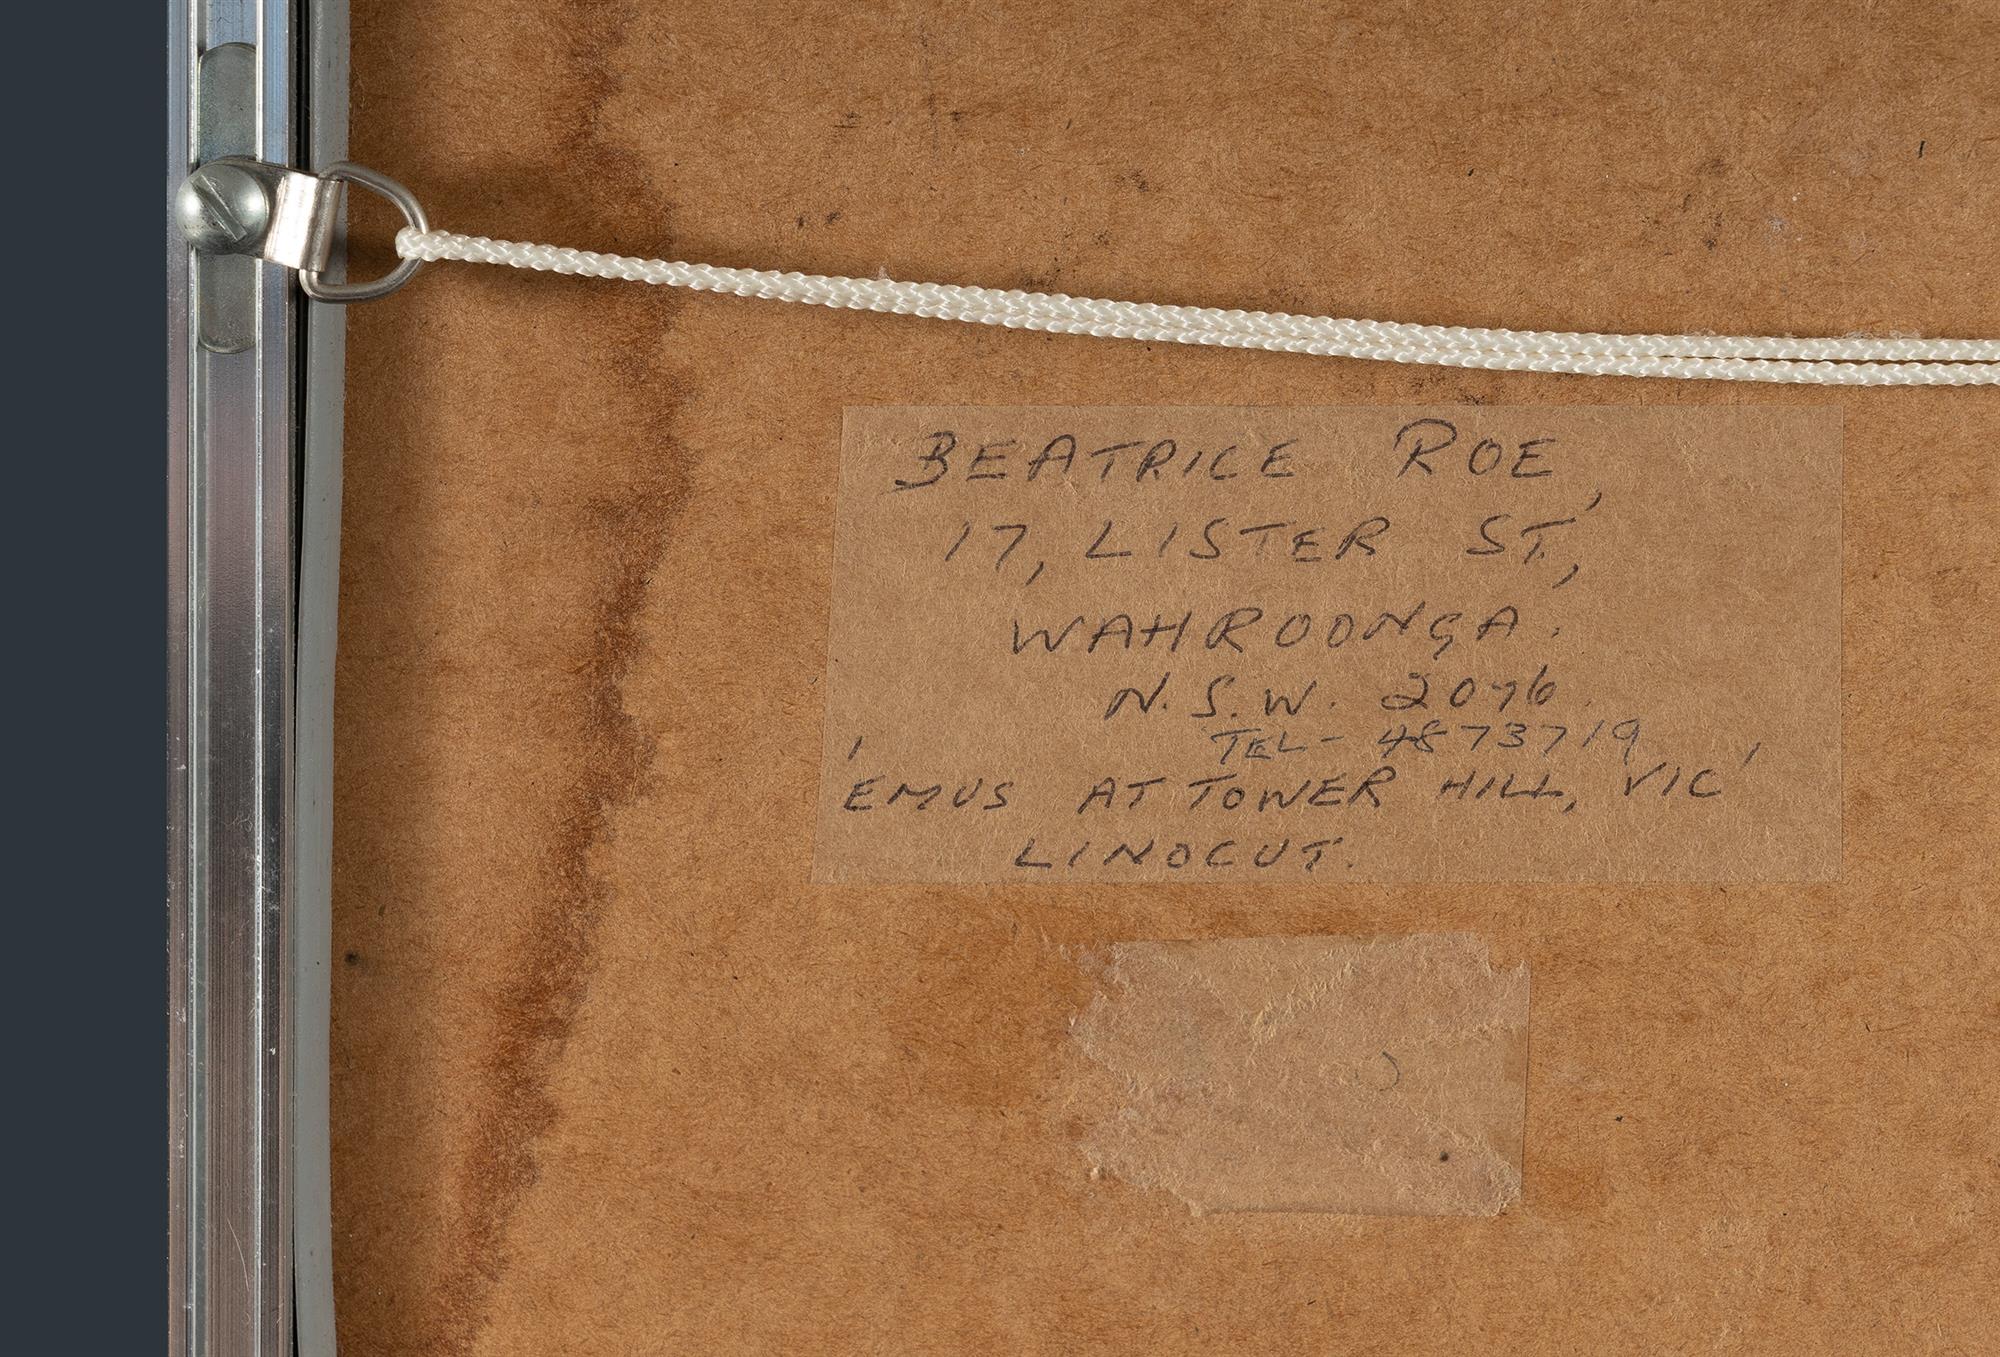 BEATRICE ROE,
17, LISTER ST.,
WAHROONGA.
N.S.W. 2076.
TEL- 4873719
'EMUS AT TOWER HILL, VIC'
LINOCUT.